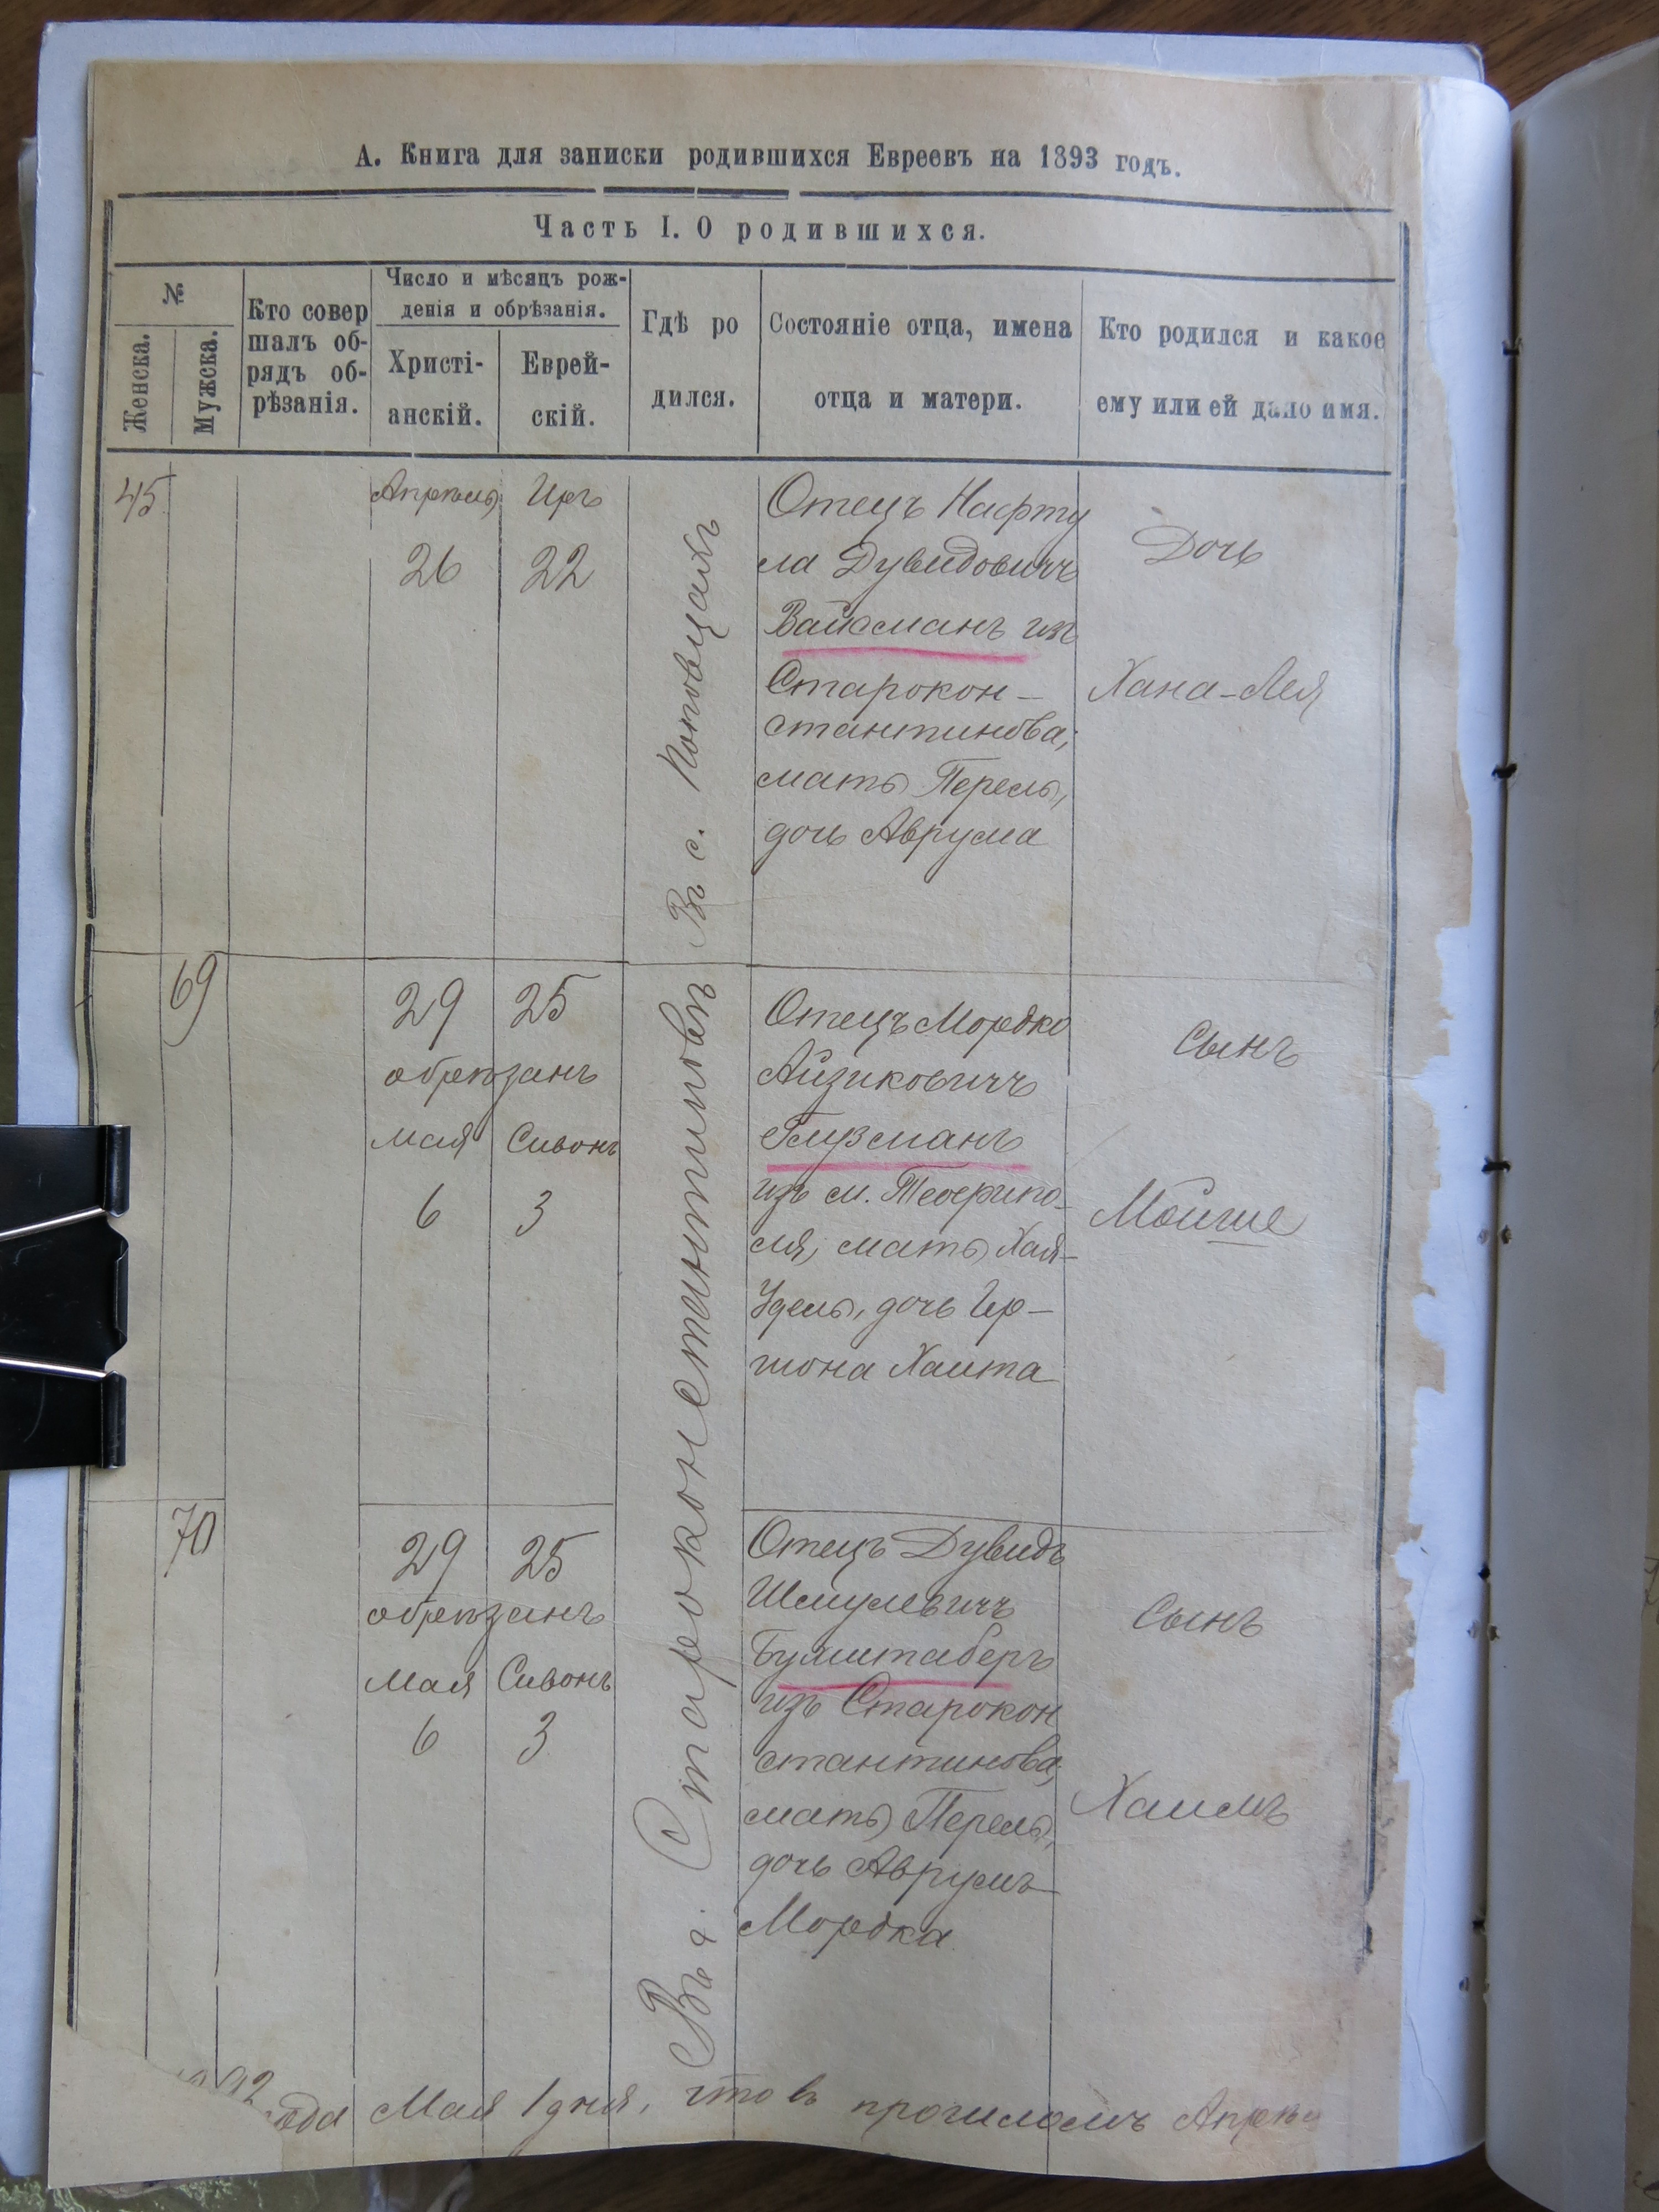 А. Книга для записки родившихся Евреевъ на 1893 годъ.
Часть I. О родившихся.
№
Женска.
Мужска.
Кто совер
шалъ об-
рядъ об-
рѣзанія.
Число и мѣсяцъ рож-
денія и обрѣзанія.
Христі-
анскій.
Еврей-
скій.
Гдѣ ро
дился.
Состояніе отца, имена
отца и матери.
Кто родился и какое
ему или ей дано имя.
45
Апрѣль Иръ
26 22
Въ с. Поповцахъ
Отецъ Нафту
ла Дувидовичъ
Вайсманъ изъ
Старокон-
стантинова,
мать Перель,
дочь Аврума
Дочь
Хана-Лея
69
29 25
обрѣзанъ
Мая Сивонъ
6 3
Въ г. Староконстантиновѣ
Отецъ Мордко
Айзиковичъ
Глузманъ
изъ м. Теофипо-
ля, мать Хая-
Удель, дочь Гер-
шона Хаита
Сынъ
Мойше
70
29 25
обрѣзанъ
Мая Сивонъ
6 3
Отецъ Дувидъ
Шмулевичъ
из Старокон
стантинова,
мать Перель,
дочь Аврумъ-
Мордка
Сынъ
Хаимъ
года Мая 1 дня, что въ прошломъ Апрѣл